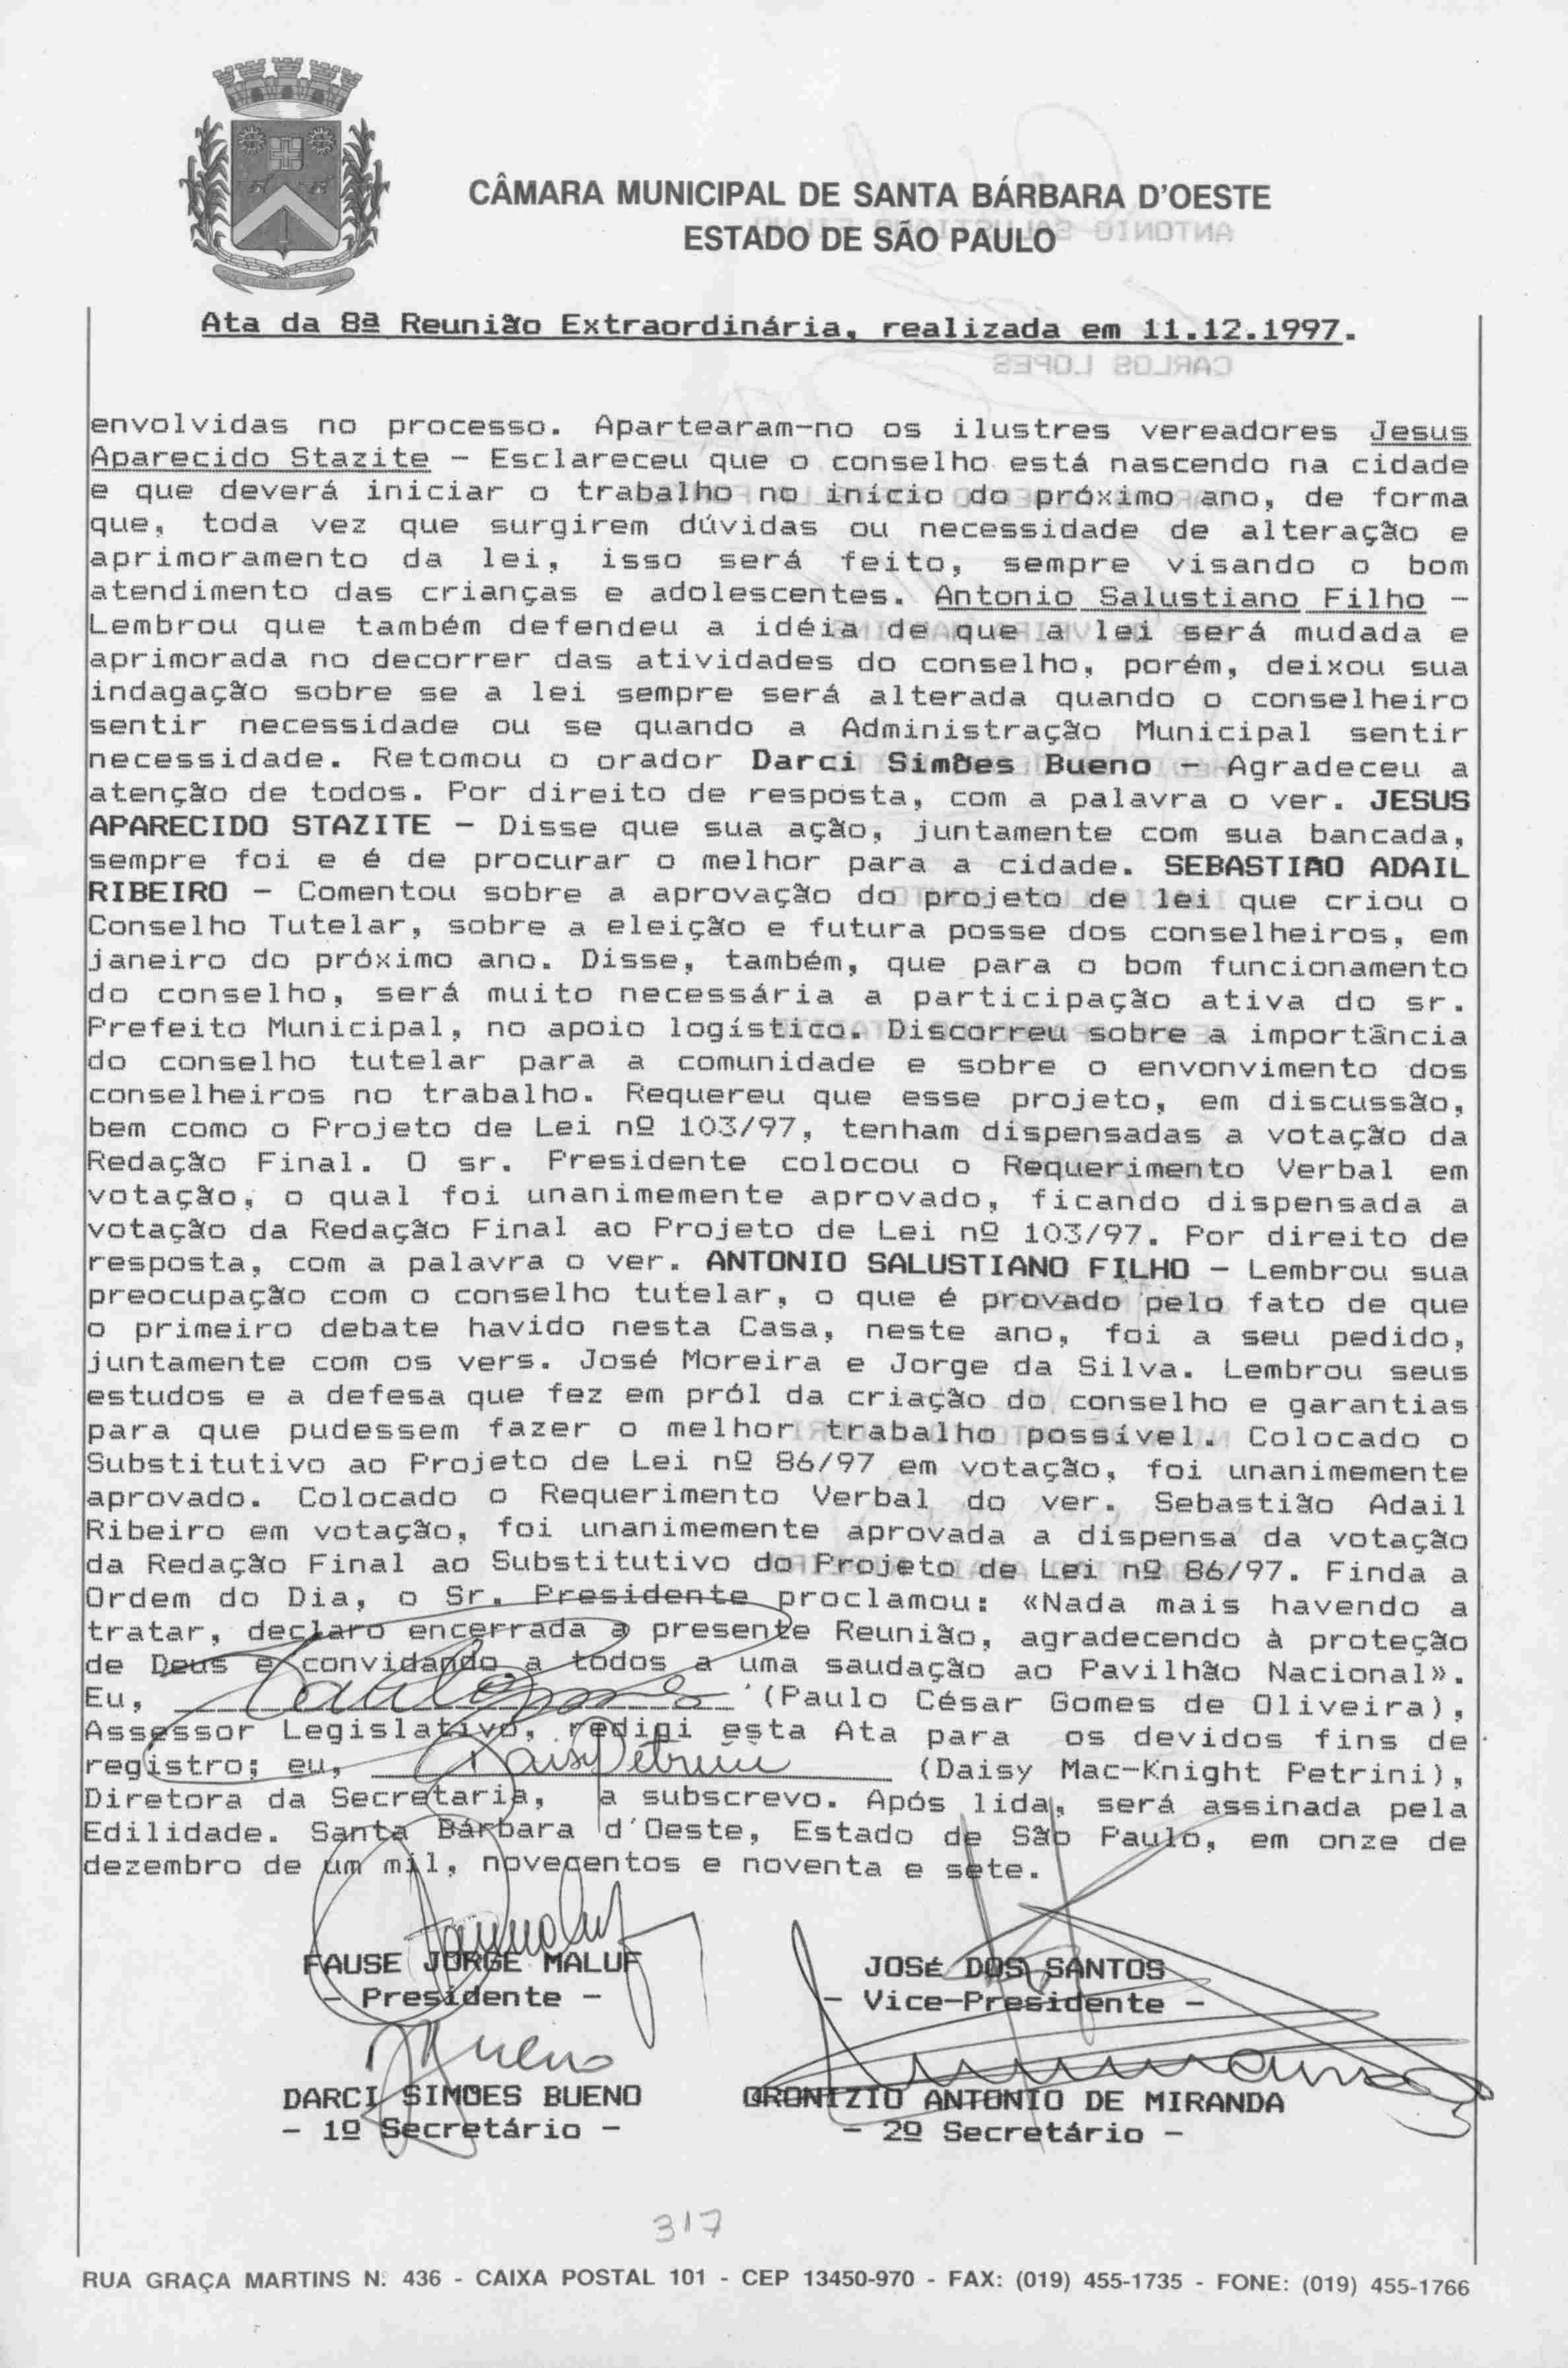 CÂMARA MUNICIPAL DE SANTA BÁRBARA D'OESTE
ESTADO DE SÃO PAULO
Ata da 8ª Reunião Extraordinária, realizada em 11.12.1997.
envolvidas no processo. Apartearam-no os ilustres vereadores Jesus
Aparecido Stazite - Esclareceu que o conselho está nascendo na cidade
e que deverá iniciar o trabalho no início do próximo ano, de forma
que, toda vez que surgirem dúvidas ou necessidade de alteração e
aprimoramento da lei, isso será feito, sempre visando o bom
atendimento das crianças e adolescentes. Antonio Salustiano Filho -
Lembrou que também defendeu a idéia de que a lei será mudada e
aprimorada no decorrer das atividades do conselho, porém, deixou sua
indagação sobre se a lei sempre será alterada quando o conselheiro
sentir necessidade ou se quando a Administração Municipal sentir
necessidade. Retomou o orador Darci Simões Bueno - Agradeceu a
atenção de todos. Por direito de resposta, com a palavra o ver. JESUS
APARECIDO STAZITE - Disse que sua ação, juntamente com sua bancada,
sempre foi e é de procurar o melhor para a cidade. SEBASTIÃO ADAIL
RIBEIRO - Comentou sobre a aprovação do projeto de lei que criou o
Conselho Tutelar, sobre a eleição e futura posse dos conselheiros, em
janeiro do próximo ano. Disse, também, que para o bom funcionamento
do conselho, será muito necessária a participação ativa do sr.
Prefeito Municipal, no apoio logístico. Discorreu sobre a importância
do conselho tutelar para a comunidade e sobre o envonvimento dos
conselheiros no trabalho. Requereu que esse projeto, em discussão,
bem como o Projeto de Lei nº 103/97, tenham dispensadas a votação da
Redação Final. O sr. Presidente colocou o Requerimento Verbal em
votação, o qual foi unanimemente aprovado, ficando dispensada a
votação da Redação Final ao Projeto de Lei nº 103/97. Por direito de
resposta, com a palavra o ver. ANTONIO SALUSTIANO FILHO - Lembrou sua
preocupação com o conselho tutelar, o que é provado pelo fato de que
o primeiro debate havido nesta Casa, neste ano, foi a seu pedido,
juntamente com os vers. José Moreira e Jorge da Silva. Lembrou seus
estudos e a defesa que fez em pról da criação do conselho e garantias
para que pudessem fazer o melhor trabalho possível. Colocado o
Substitutivo ao Projeto de Lei nº 86/97 em votação, foi unanimemente
aprovado. Colocado o Requerimento Verbal do ver. Sebastião Adail
Ribeiro em votação, foi unanimemente aprovada a dispensa da votação
da Redação Final ao Substitutivo do Projeto de Lei nº 86/97. Finda a
Ordem do Dia, o Sr. Presidente proclamou: «Nada mais havendo a
tratar, declaro encerrada a presente Reunião, agradecendo à proteção
de Deus e convidando a todos a uma saudação ao Pavilhão Nacional».
Eu, (Paulo César Gomes de Oliveira),
Assessor Legislativo, redigi esta Ata para os devidos fins de
registro; eu, Daisy Petrini (Daisy Mac-Knight Petrini),
Diretora da Secretaria, a subscrevo. Após lida, será assinada pela
Edilidade. Santa Bárbara d'Oeste, Estado de São Paulo, em onze de
dezembro de um mil, novecentos e noventa e sete.
FAUSE JORGE MALUF
- Presidente -
JOSÉ DOS SANTOS
- Vice-Presidente -
Bueno
DARCI SIMÕES BUENO
- 1º Secretário -
ORONIZIO ANTONIO DE MIRANDA
- 2º Secretário -
317
RUA GRAÇA MARTINS N. 436 - CAIXA POSTAL 101 - CEP 13450-970 - FAX: (019) 455-1735 - FONE: (019) 455-1766